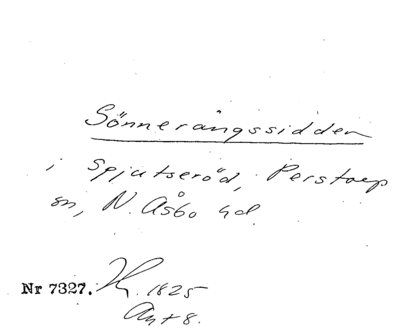 Sönnerängssidden
i Spjutseröd, Perstorp
sn, N. Åsbo hd.
Nr 7327. 1825
Ant 8.